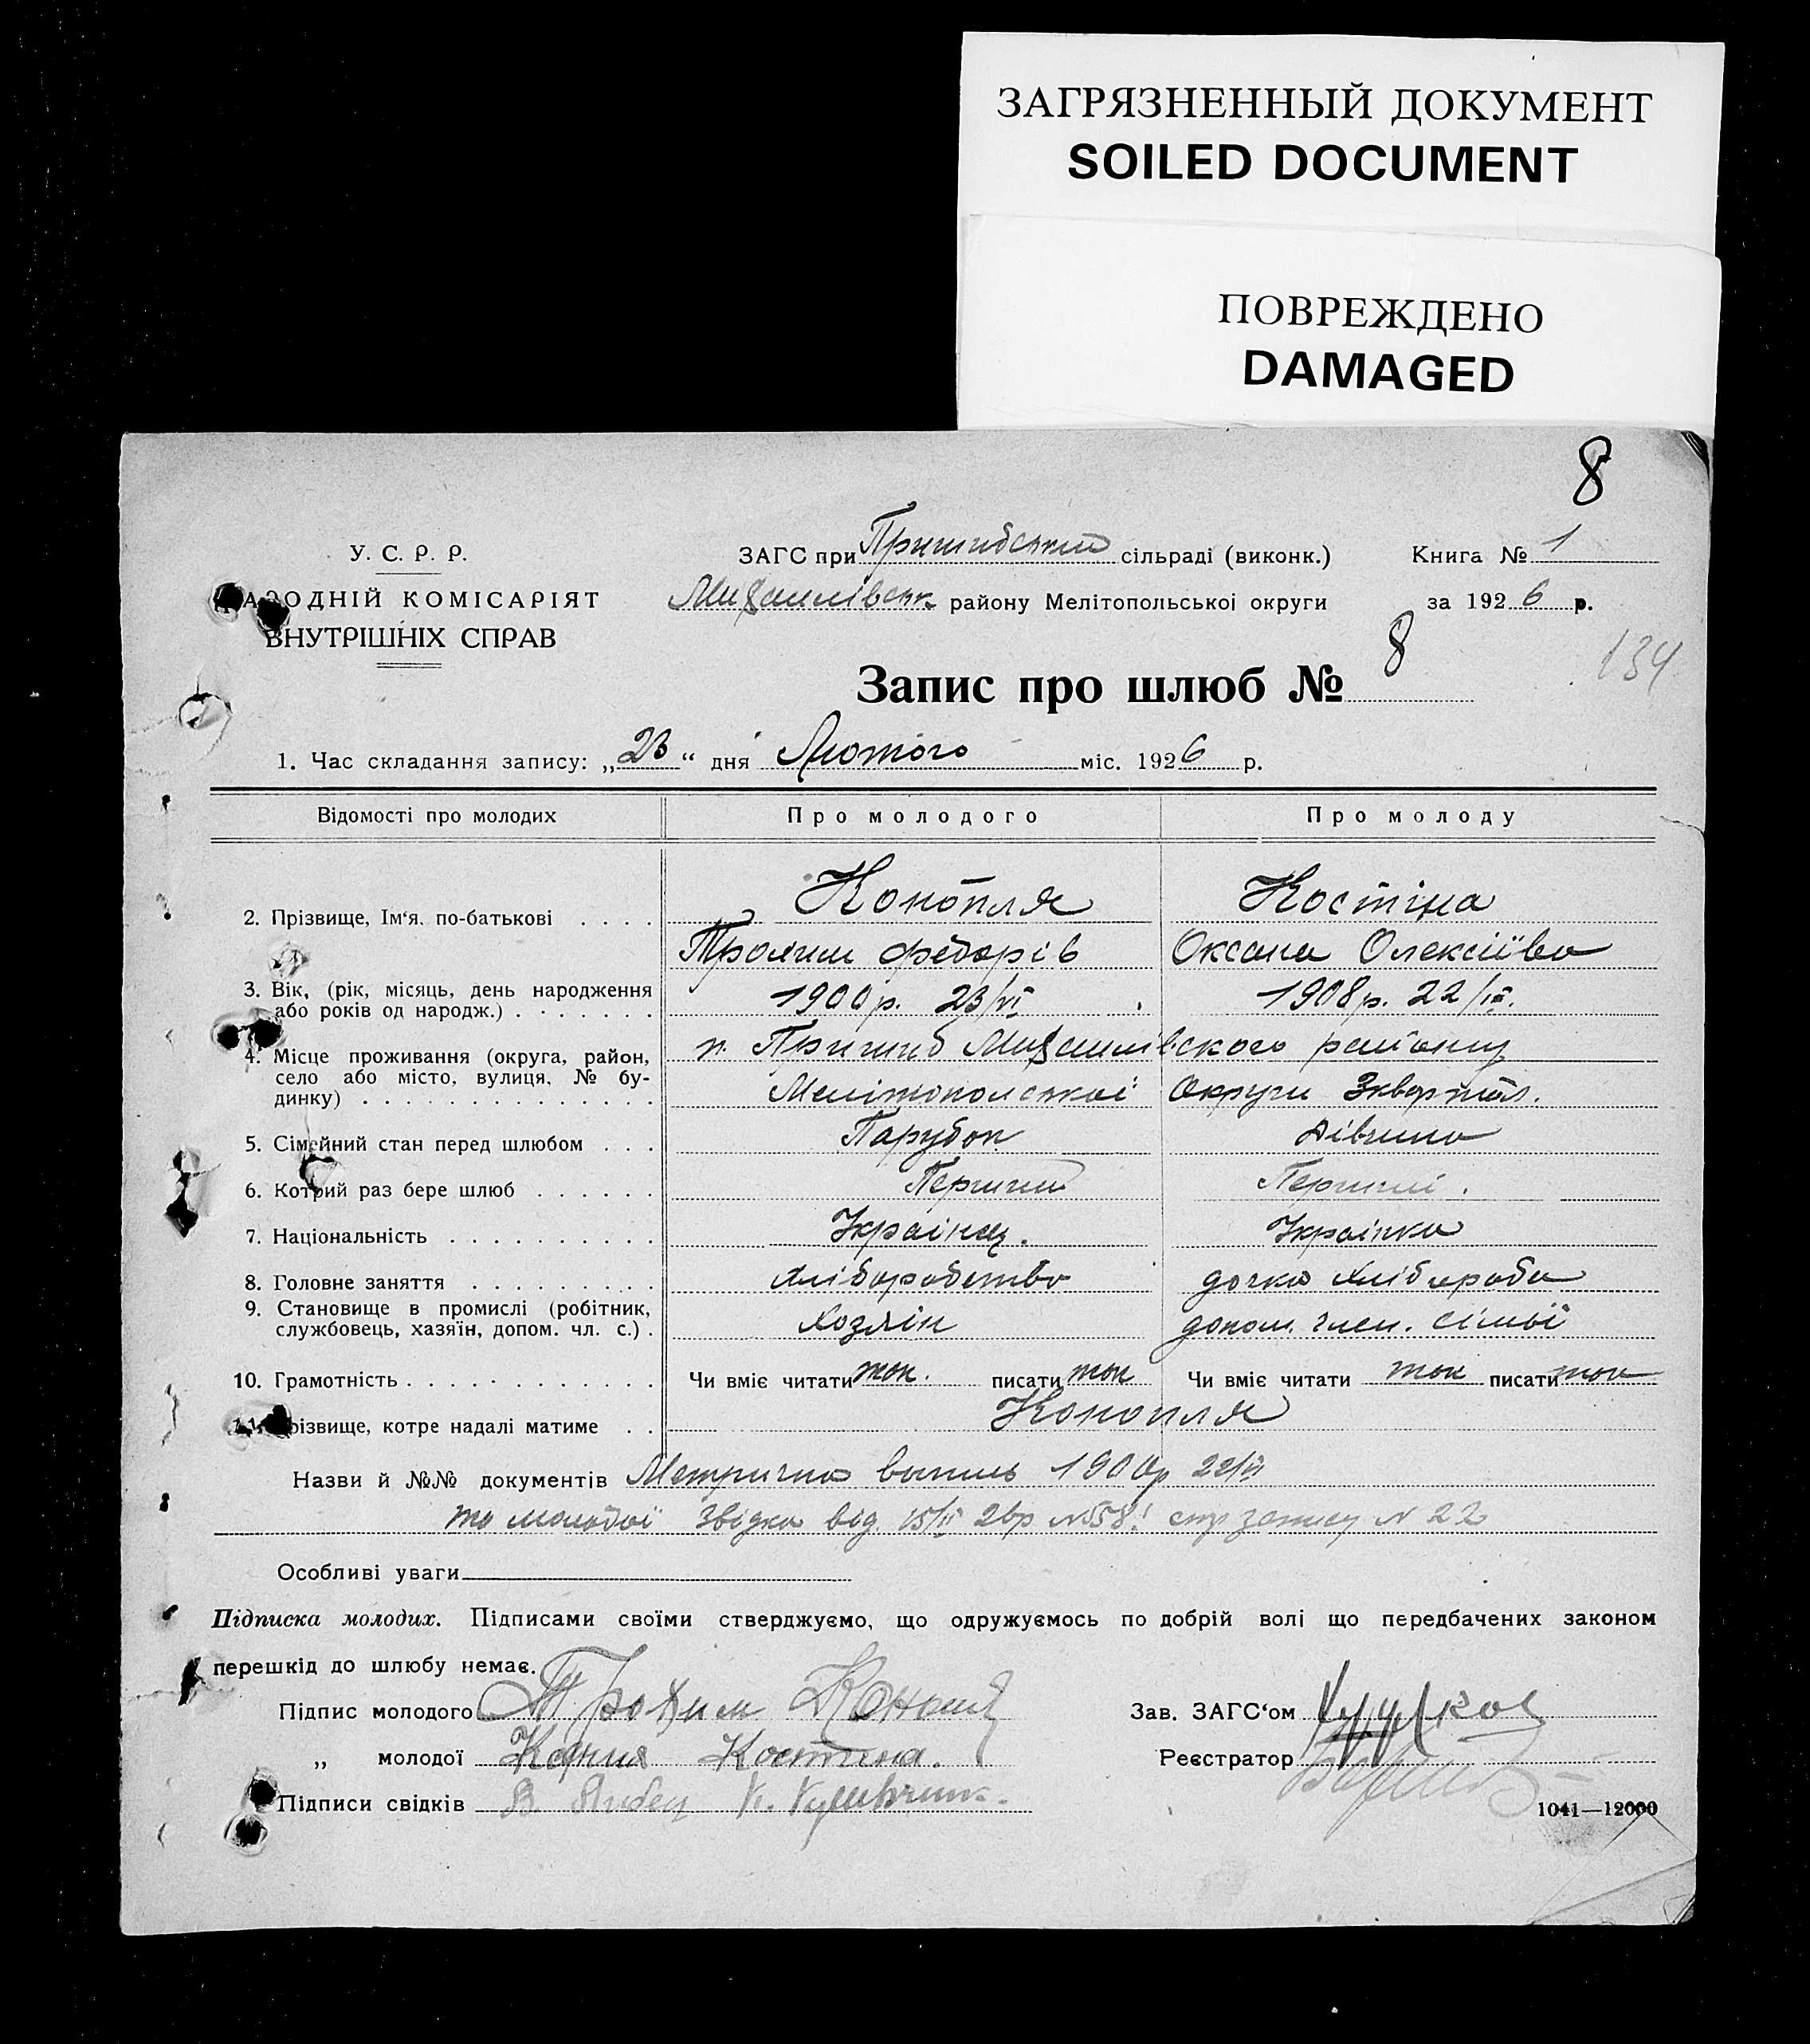 ЗАГРЯЗНЕННЫЙ ДОКУМЕНТ
SOILED DOCUMENT
ПОВРЕЖДЕНО
DAMAGED
8
У. С. Р. Р.
НАРОДНІЙ КОМІСАРІЯТ
ВНУТРІШНІХ СПРАВ
ЗАГС при Пришибський сільраді (виконк.) Книга № 1
Михайлівськ. району Мелітопольської округи за 1926 р.
134
Запис про шлюб № 8
1. Час складання запису: „23“ дня Лютого міс. 1926 р.
Відомості про молодих Про молодого Про молоду
2. Прізвище, Ім‘я, по-батькові Конопля Костіна
Трохим Федорів Оксана Олексіїва
3. Вік, (рік, місяць, день народження або років од народж.) 1900 р. 23/VI 1908 р. 22/III.
4. Місце проживання (округа, район, село або місто, вулиця, № будинку) п. Пришиб Михайлівского району
Мелітополської Округи 3 квартал.
5. Сімейний стан перед шлюбом Парубок Дівчина
6. Котрий раз бере шлюб Перший Перший.
7. Національність Украінец. Украінка
8. Головне заняття Хліборобство дочка хлібороба
9. Становище в промислі (робітник, службовець, хазяїн, допом. чл. с.) Хозяін допом. член. сімьї
10. Грамотність Чи вміє читати так. писати так Чи вміє читати так писати так
11. Прізвище, котре надалі матиме Конопля
Назви й №№ документів Метрична выпись 1900р 22/VI
та молодої Звідка від. 15/II 26р № 58. запису № 22
Особливі уваги
Підписка молодих. Підписами своїми стверджуємо, що одружуємось по добрій волі що передбачених законом
перешкід до шлюбу немає.
Підпис молодого Трохим Конопля Зав. ЗАГС‘ом
„ молодої Ксения Костина. Реєстратор
Підписи свідків В. К.
1041—12000